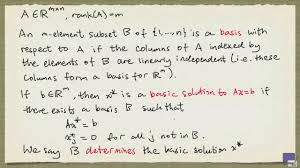 A ∈ ℝᵐˣⁿ, rank(A)=m
An m-element subset B of {1,...,n} is a basis with
respect to A if the columns of A indexed by
the elements of B are linearly independent (i.e. these
columns form a basis for ℝᵐ).
If b ∈ ℝᵐ, then x* is a basic solution to Ax=b if
there exists a basis B such that
Ax* = b
xⱼ* = 0 for all j not in B.
We say B determines the basic solution x*